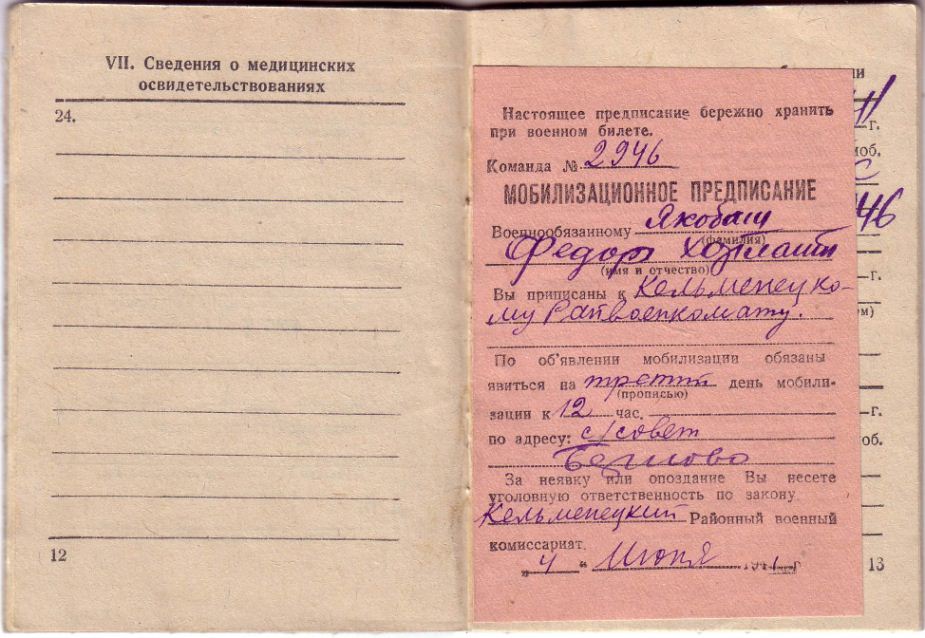 VII. Сведения о медицинских
освидетельствованиях
24.
12
Настоящее предписание бережно хранить
при военном билете.
Команда № 2946
МОБИЛИЗАЦИОННОЕ ПРЕДПИСАНИЕ
Военнообязанному Якобаш
(фамилия)
Федор
(имя и отчество)
Вы приписаны к Кельменецко-
му Райвоенкомату.
По об'явлении мобилизации обязаны
явиться на третий день мобили-
(прописью)
зации к 12 час.
по адресу: с/совет
За неявку или опоздание Вы несете
уголовную ответственность по закону
Кельменецкий Районный военный
комиссариат.
"4" Июня 1941 г
ии
41
г.
моб.
С
946
г.
ом)
г.
об.
13